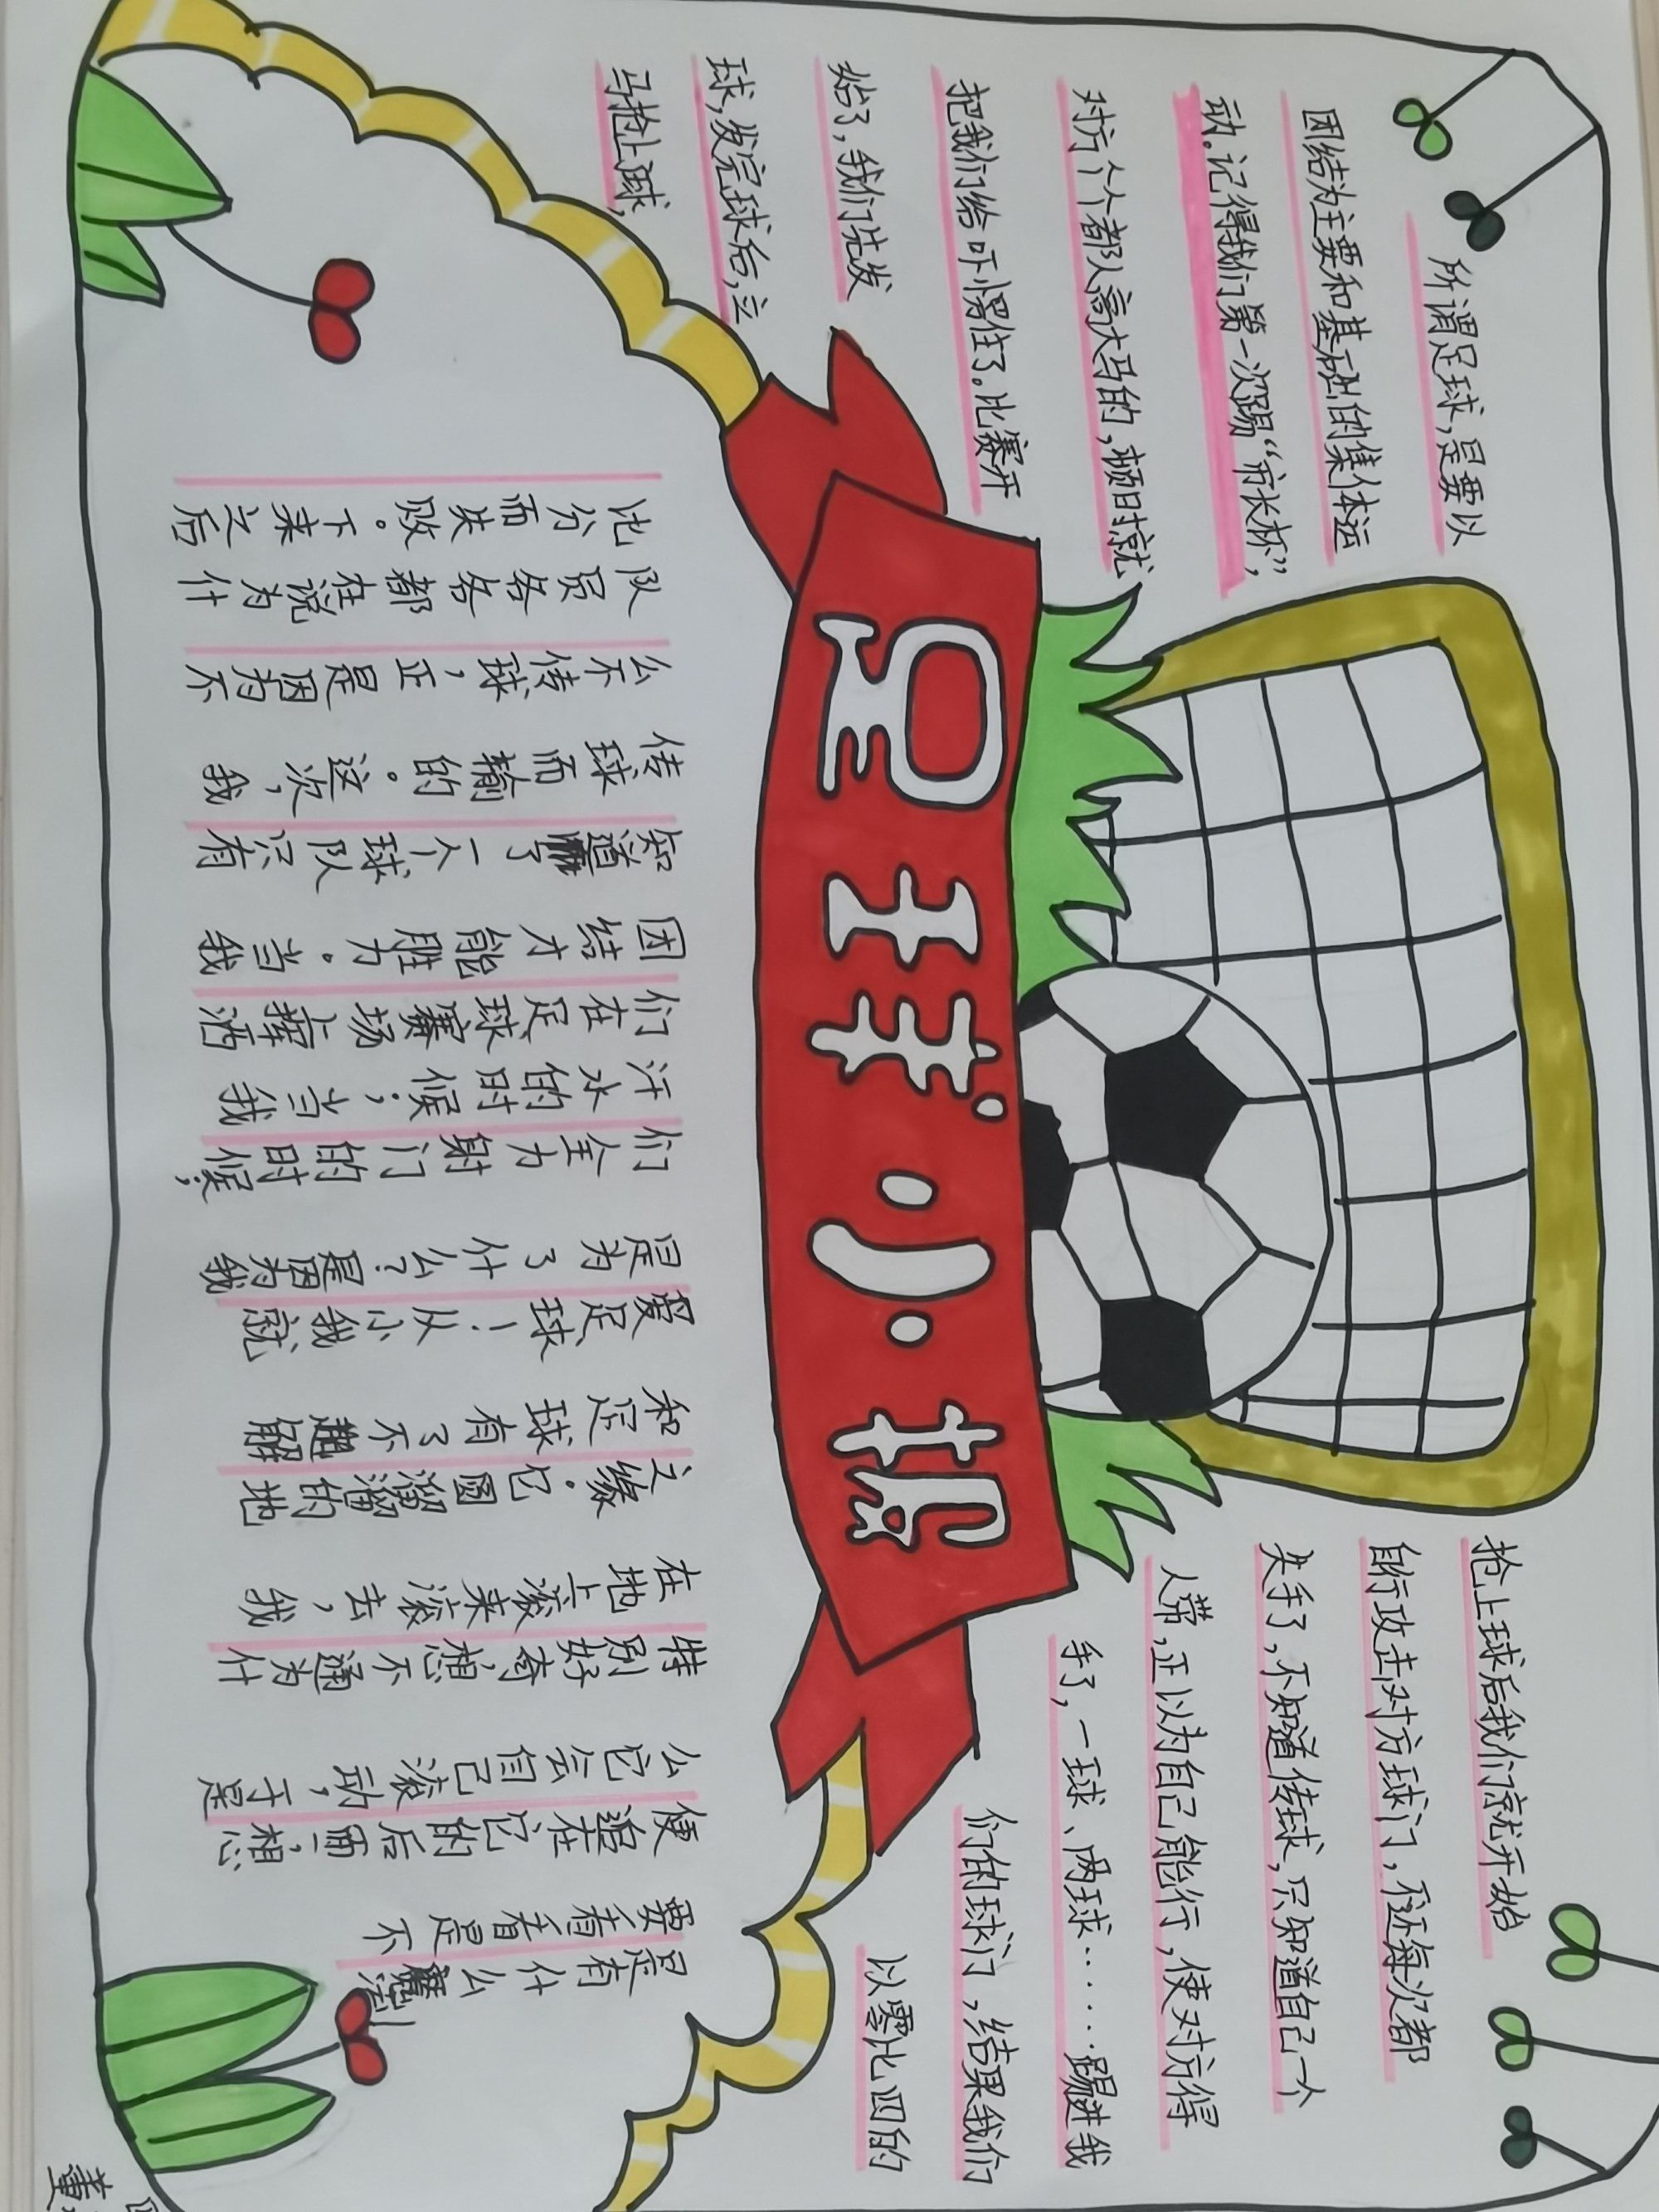 足球小报
所谓足球,是要以
团结为主要和基础的集体运
动。记得我们第一次踢“市长杯”,
对方个个都人高大马的,顿时就
把我们给吓愣住了。比赛开
始了,我们先发
球,发完球后,立
马抢上球,
抢上球后我们就开始
自行攻击对方球门,不过每次都
失手了,不知道传球,只知道自己一个
人带,正以为自己能行,使对方得
手了,一球、两球……踢进我
们的球门,结果我们
以零比四的
比分而失败。下来之后
队员各各都在说为什
么不传球,正是因为不
传球而输的。这次,我
知道了一个球队只有
团结才能胜力。当我
们在足球赛场上挥洒
汗水的时候;当我
们全力射门的时候;
是为了什么?是因为我
爱足球!从小我就
和足球有了不解
之缘。它圆溜溜的地
在地上滚来滚去,我
特别好奇,想不通为什
么它会自己滚动,于是
便追在它的后面,想
要看看是不
是有什么魔法
董